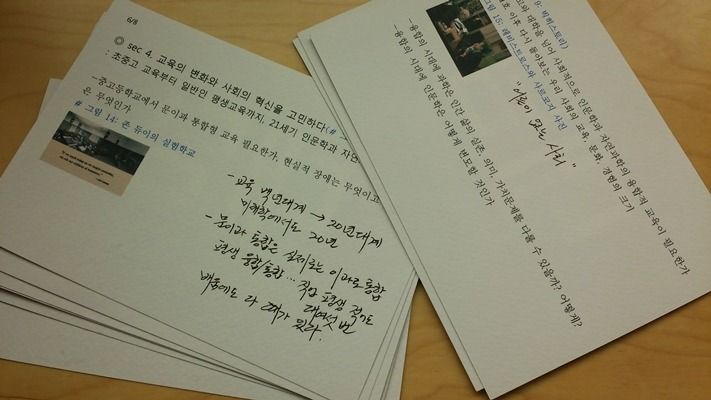 6/8
◎ sec 4. 교육의 변화와 사회의 혁신을 고민하다(#
: 초중고 교육부터 일반인 평생교육까지, 21세기 인문학과 자연
-중고등학교에서 문이과 통합형 교육 필요한가, 현실적 장애는 무엇이고
은 무엇인가
# 그림 14: 존 듀이의 실험학교
- 교육 백년대계 → 20년대계
미래학에서도 20년
- 문이과 통합은 실제로는 이과로 통합
평생 융합/통합 … 직업 평생 적어도
대여섯 번
배움에도 다 때가 있다.
9: 빅히스토리)
대학을 넘어 사회적으로 인문학과 자연과학의 융합적 교육이 필요한가
이후 다시 돌아보는 우리 사회의 교육, 문화, 경험의 크기
그림 15: 레비스트로스와 사르코지 사진
"어른이 없는 사회"
-융합의 시대에 과학은 인간 삶의 실존, 의미, 가치문제를 다룰 수 있을까? 어떻게?
-융합의 시대에 인문학은 어떻게 변모할 것인가